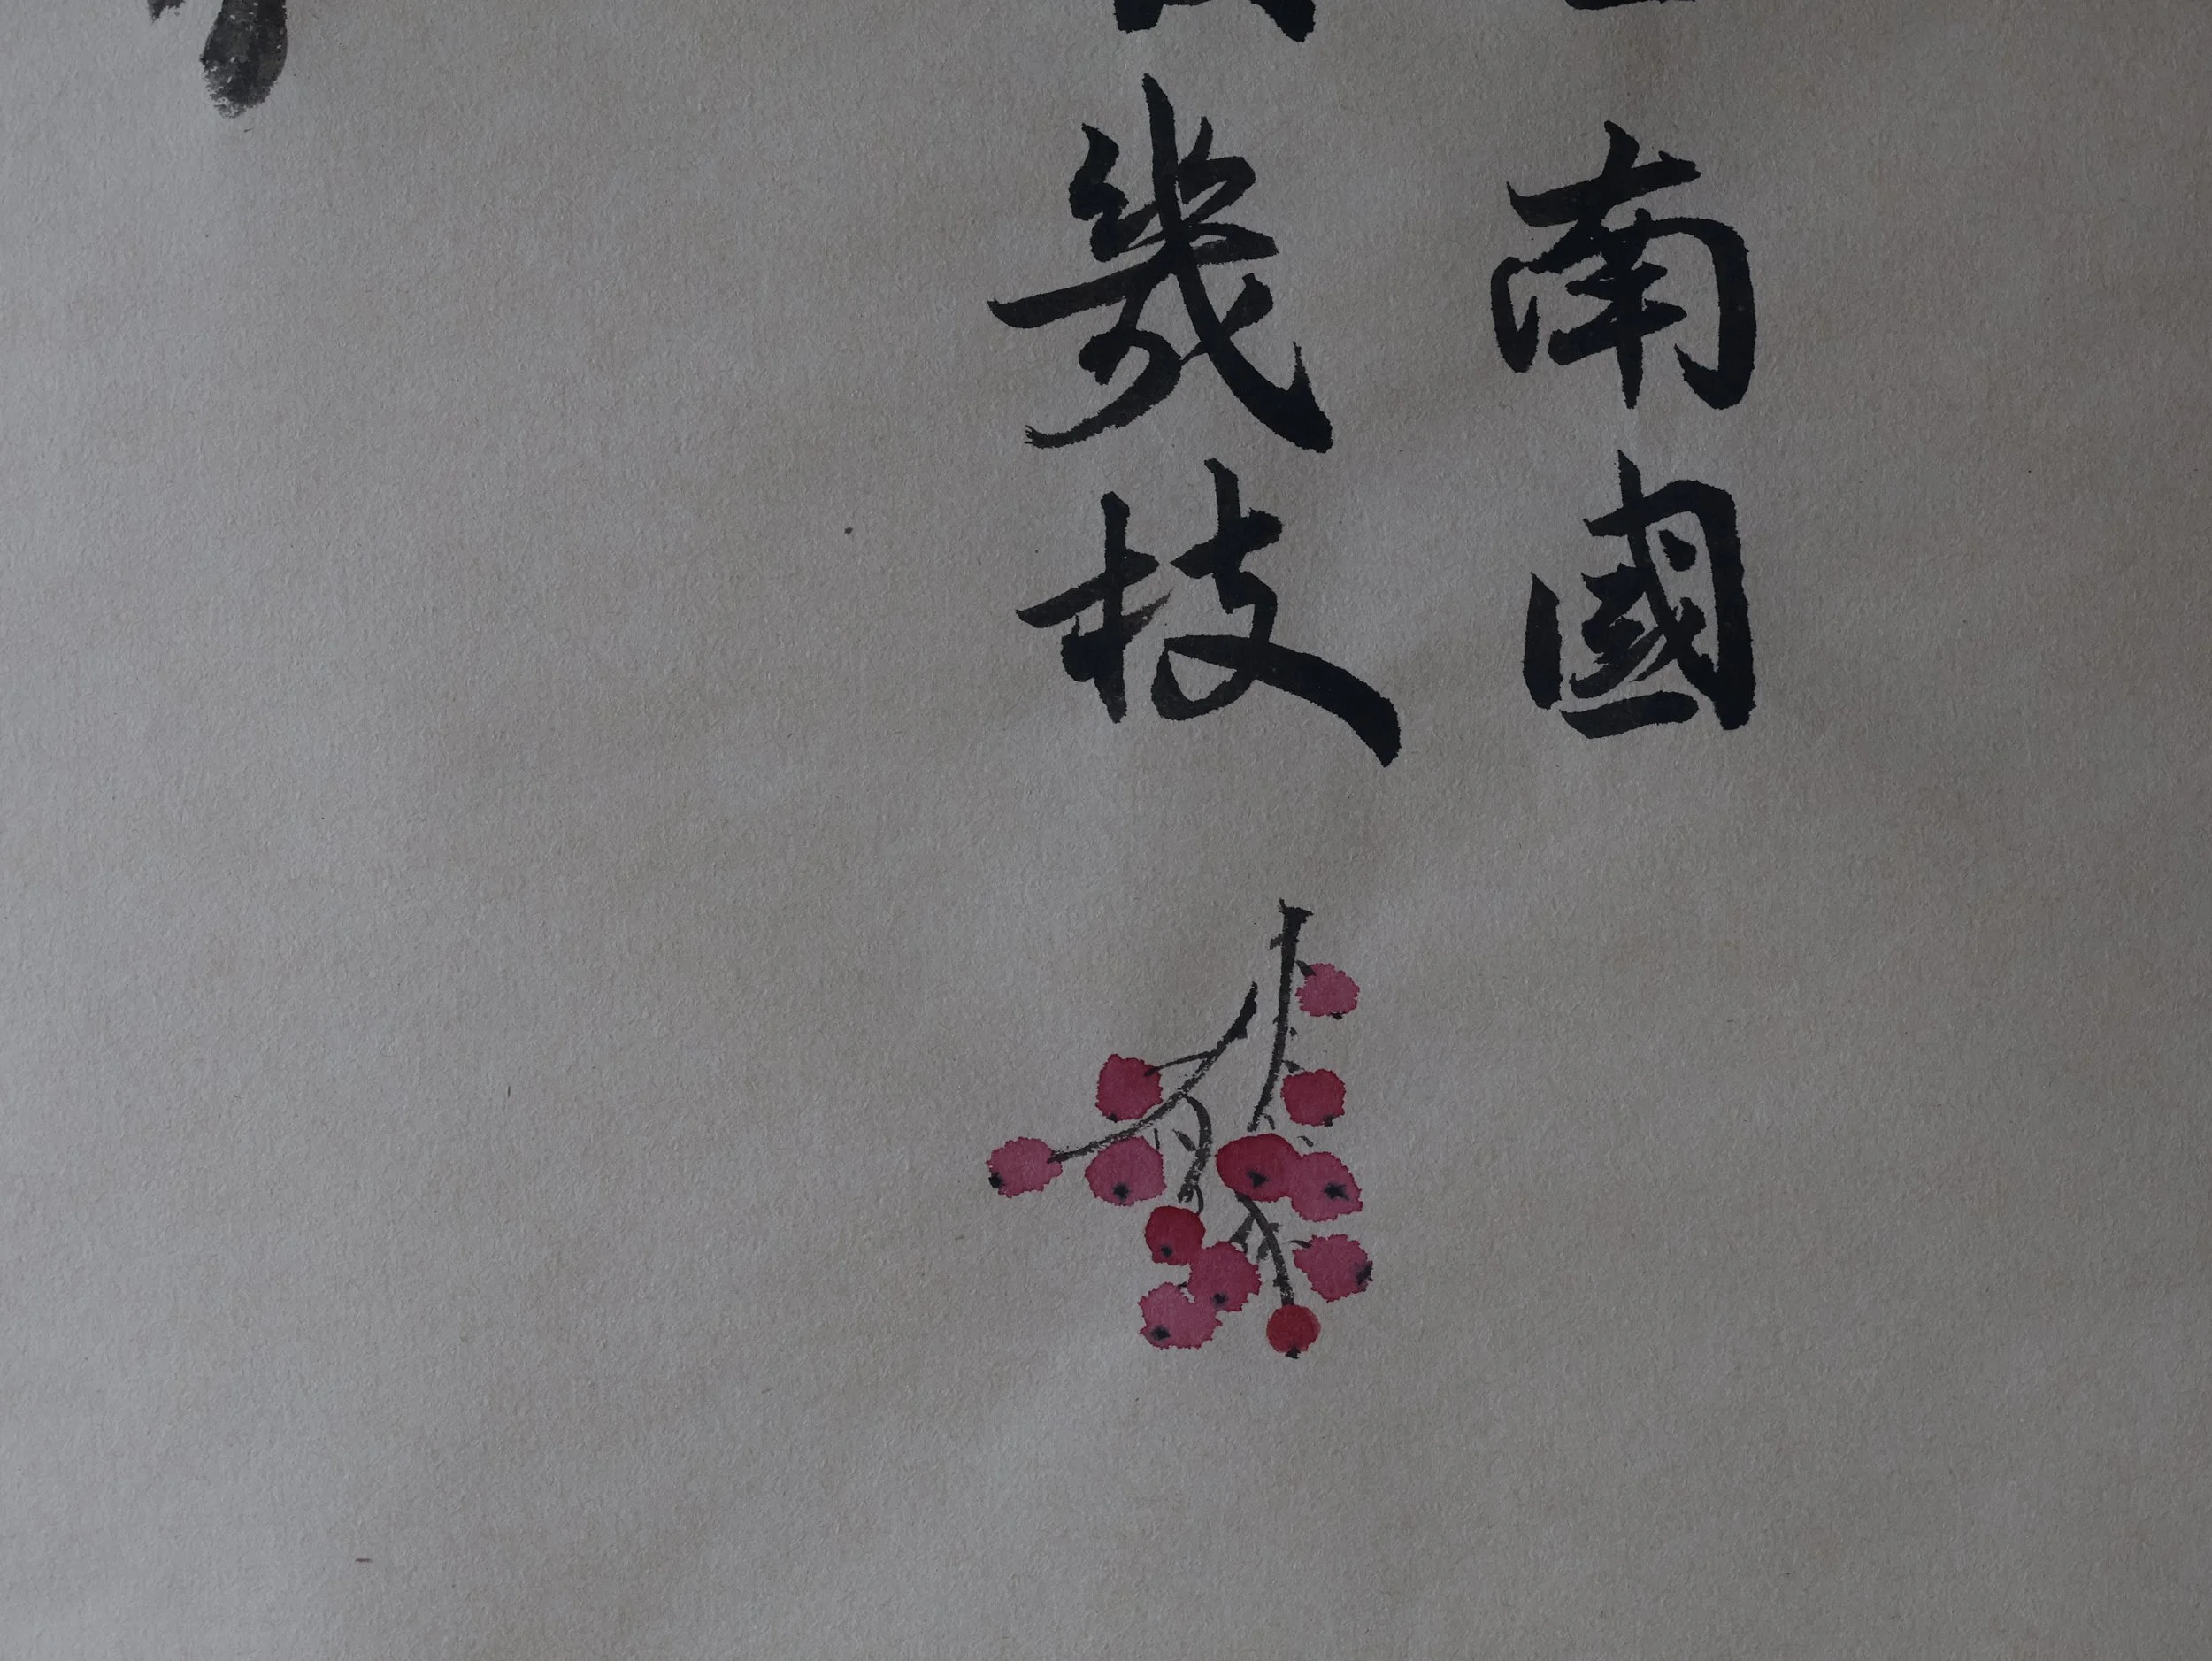 南國
幾枝